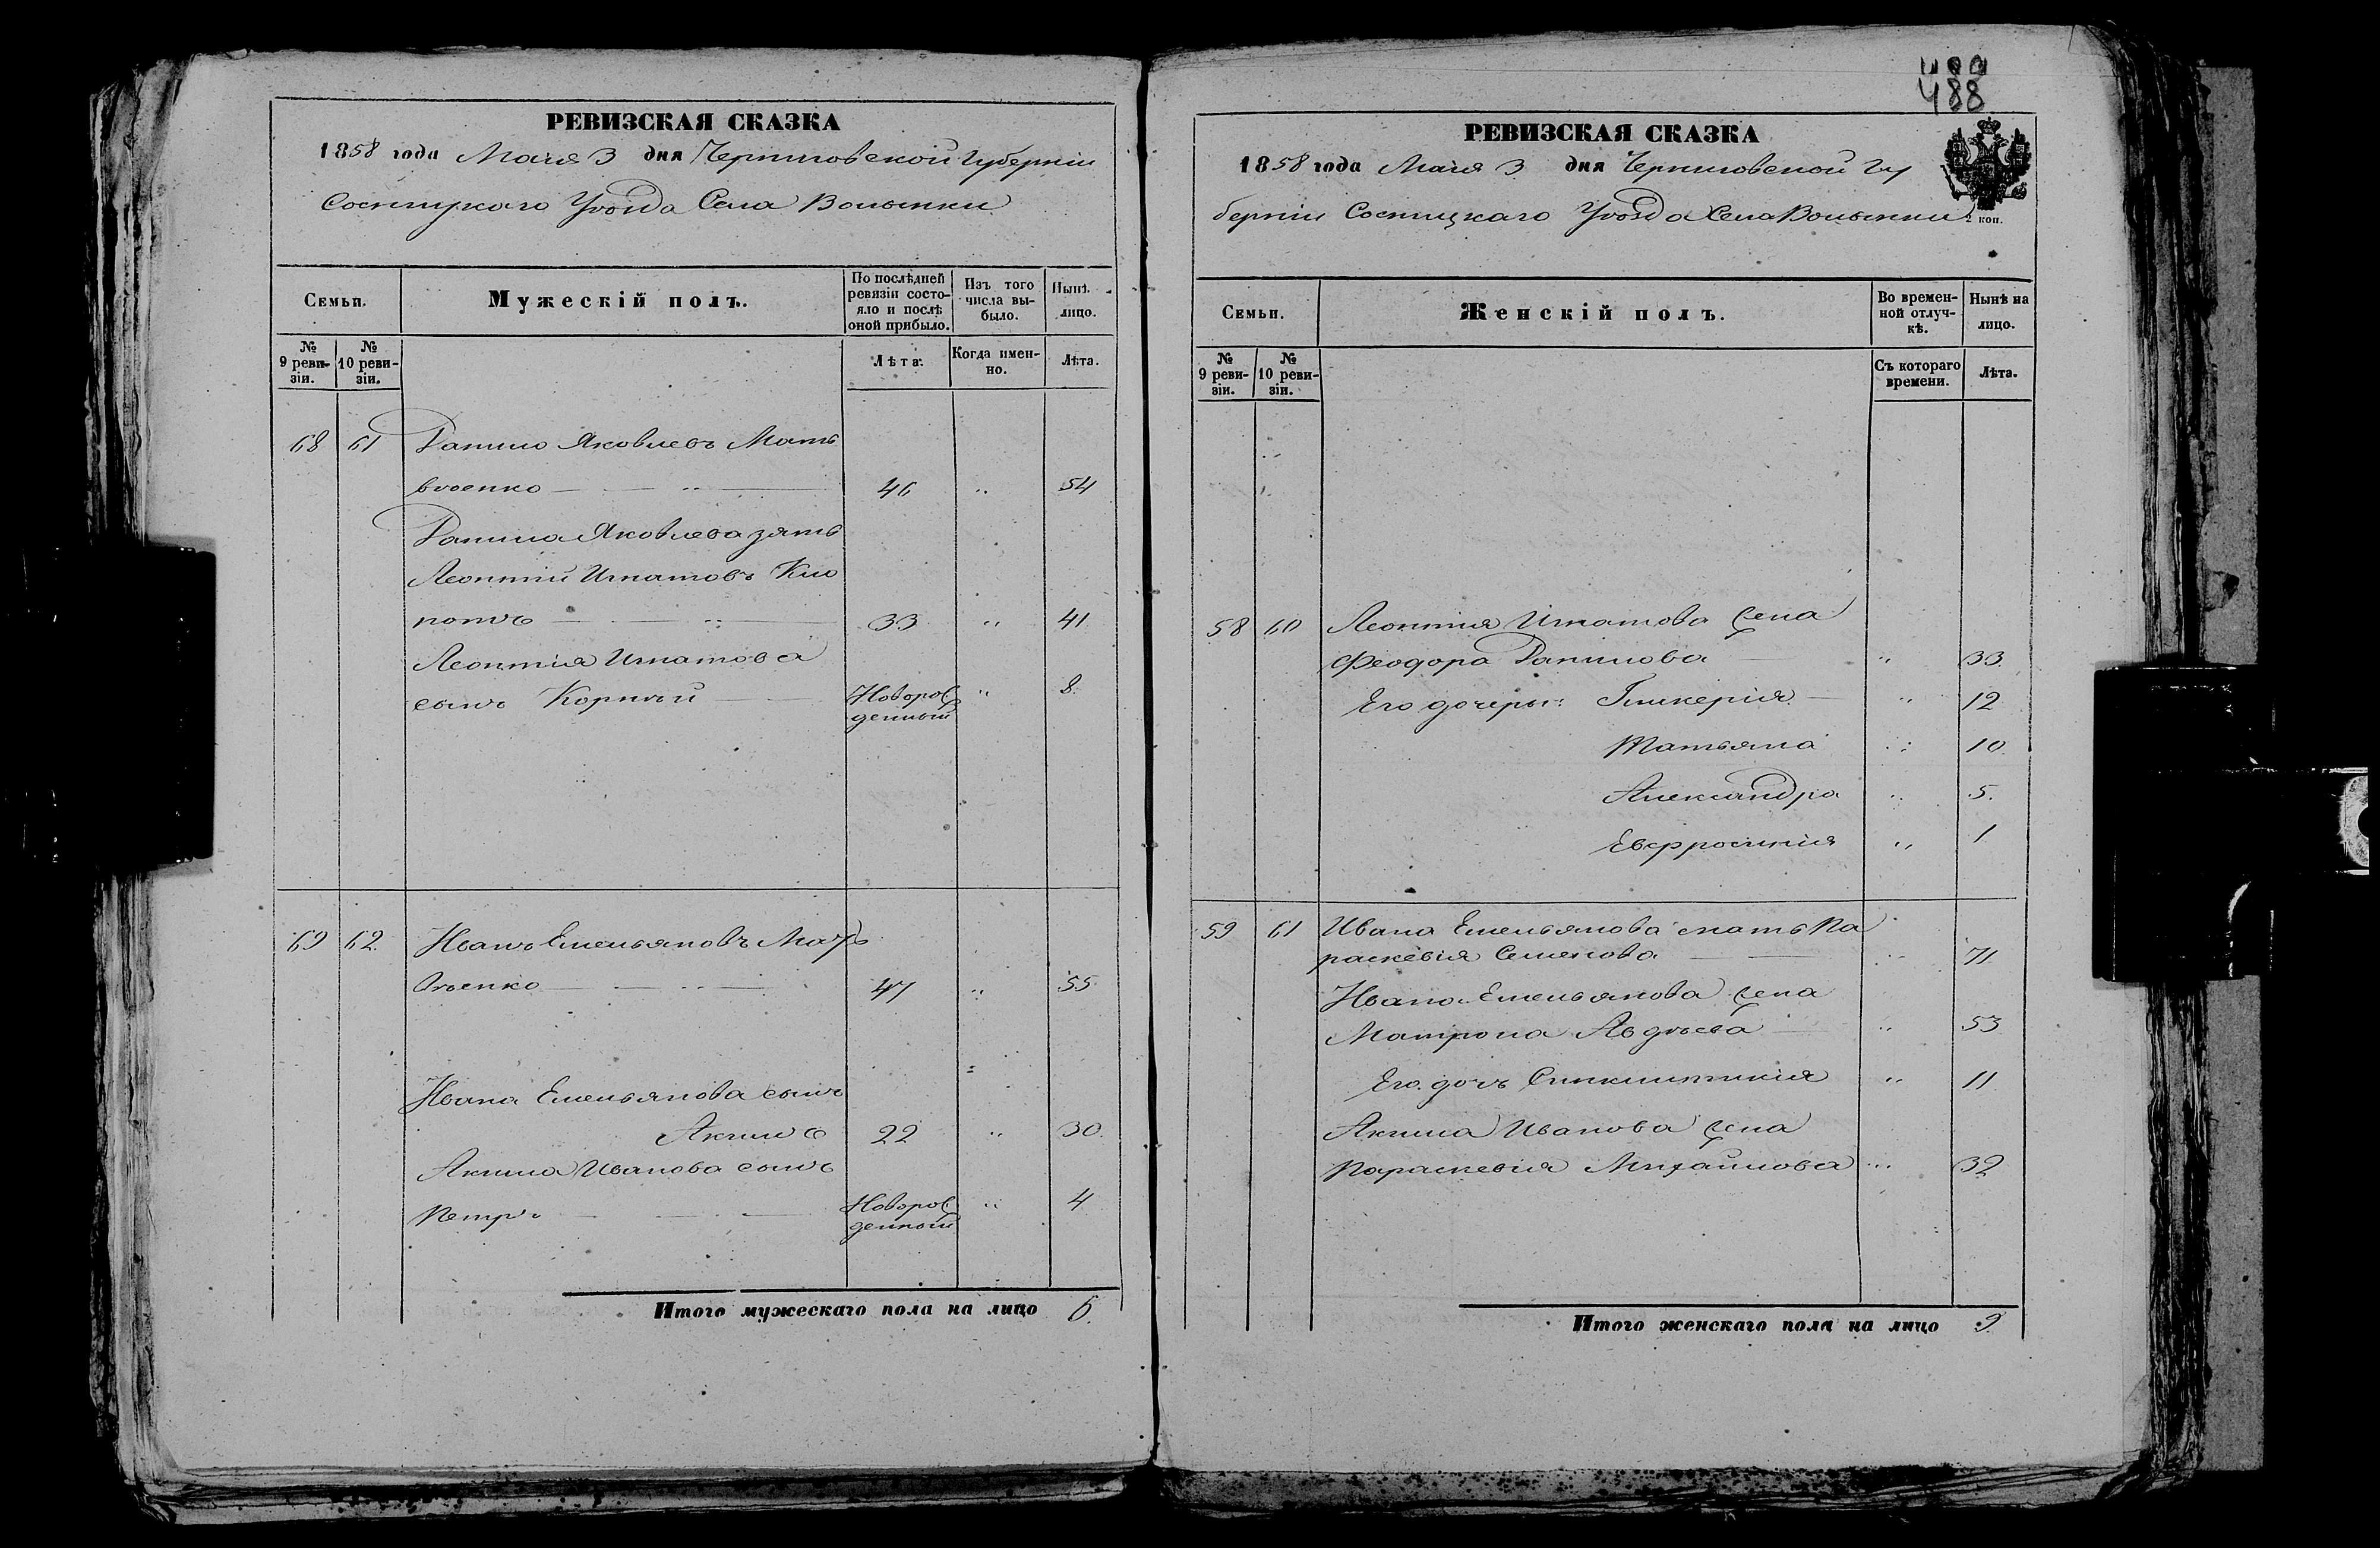 РЕВИЗСКАЯ СКАЗКА
1858 года Маія 3 дня Черниговской Губерніи
Сосницкаго Уѣзда Села Волынки
Семьи.
Мужескій полъ.
По послѣдней ревизіи состояло и послѣ оной прибыло.
Изъ того числа выбыло.
Нынѣ лицо.
№ 9 ревизіи.
№ 10 ревизіи.
Лѣта.
Когда именно.
Лѣта.
68 61 Данило Яковлевъ Мать
вѣенко 46 " 54
Данила Яковлева зять
Леонтій Игнатовъ
33 " 41
Леонтія Игнатова
сынъ Корнѣй Новорож " 8
денный
69 62 Иванъ Емельяновъ Мать
вѣенко 47 " 55
Ивана Емельянова сынъ
Акимъ 22 " 30
Акима Иванова сынъ
Петръ Новорож " 4
денный
Итого мужескаго пола на лицо 6.
488
РЕВИЗСКАЯ СКАЗКА
1858 года Маія 3 дня Черниговской Гу
берніи Сосницкаго Уѣзда Села Волынки
2 коп.
Семьи.
Женскій полъ.
Во временной отлучкѣ.
Нынѣ на лицо.
№ 9 ревизіи.
№ 10 ревизіи.
Съ котораго времени.
Лѣта.
58 60 Леонтія Игнатова жена
Феодора Данилова " 33
Его дочери: Гликерія " 12
Татьяна " 10
Александра " 5.
Евфросинія " 1
59 61 Ивана Емельянова мать Па
раскевія Семенова " 71
Ивана Емельянова жена
Матрона Авдѣева " 53
Его дочь Синклитикія " 11
Акима Иванова жена
Параскевія Михайлова " 32
Итого женскаго пола на лицо 9.